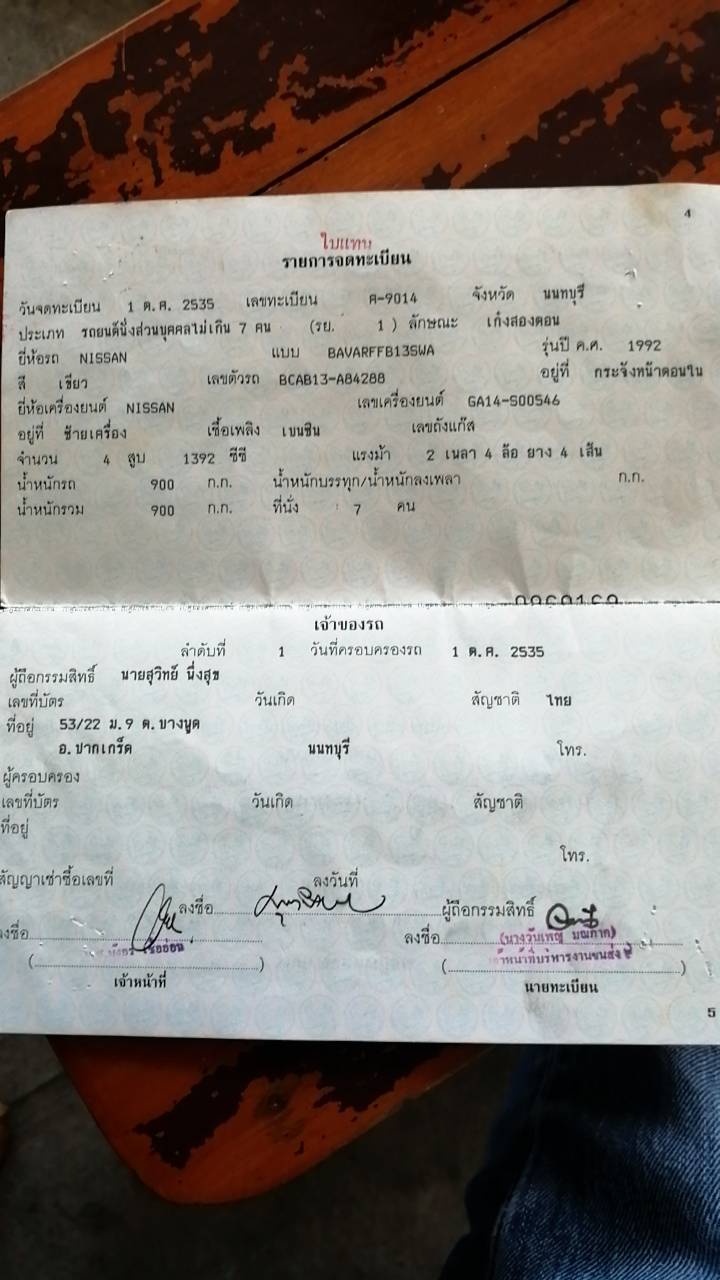 4
ใบแทน
รายการจดทะเบียน
วันจดทะเบียน 1 ต.ค. 2535 เลขทะเบียน ศ-9014 จังหวัด นนทบุรี
ประเภท รถยนต์นั่งส่วนบุคคลไม่เกิน 7 คน (รย. 1 ) ลักษณะ เก๋งสองตอน
ยี่ห้อรถ NISSAN แบบ BAVARFFB13SWA รุ่นปี ค.ศ. 1992
สี เขียว เลขตัวรถ BCAB13-A84288 อยู่ที่ กระจังหน้าตอนใน
ยี่ห้อเครื่องยนต์ NISSAN เลขเครื่องยนต์ GA14-S00546
อยู่ที่ ซ้ายเครื่อง เชื้อเพลิง เบนซิน เลขถังแก๊ส
จำนวน 4 สูบ 1392 ซีซี แรงม้า 2 เพลา 4 ล้อ ยาง 4 เส้น
น้ำหนักรถ 900 ก.ก. น้ำหนักบรรทุก/น้ำหนักลงเพลา ก.ก.
น้ำหนักรวม 900 ก.ก. ที่นั่ง 7 คน
เจ้าของรถ
ลำดับที่ 1 วันที่ครอบครองรถ 1 ต.ค. 2535
ผู้ถือกรรมสิทธิ์ นายสุวิทย์ นึ่งสุข
เลขที่บัตร วันเกิด สัญชาติ ไทย
ที่อยู่ 53/22 ม.9 ต.บางพูด
อ.ปากเกร็ด นนทบุรี โทร.
ผู้ครอบครอง
เลขที่บัตร วันเกิด สัญชาติ
ที่อยู่
โทร.
สัญญาเช่าซื้อเลขที่ ลงวันที่
ลงชื่อ ผู้ถือกรรมสิทธิ์
ลงชื่อ ลงชื่อ
(นางวันเพ็ญ
เจ้าหน้าที่บริหารงานขนส่ง
( ) ( )
เจ้าหน้าที่ นายทะเบียน
5